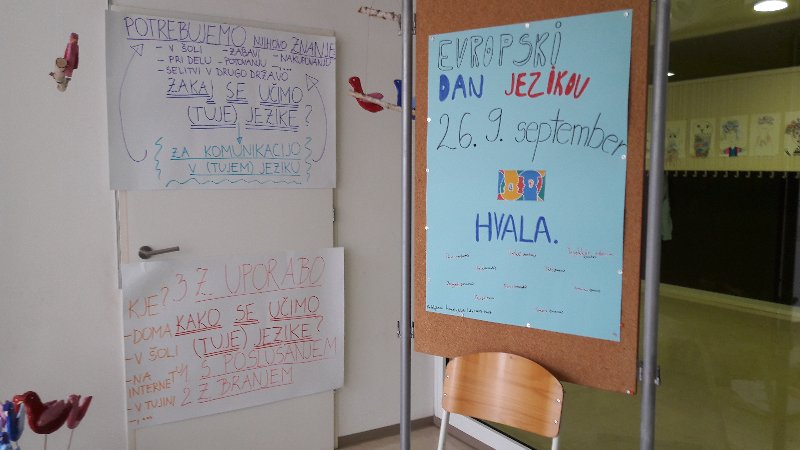 POTREBUJEMO NJIHOVO ZNANJE
- V ŠOLI - ZABAVI - NAKUPOVANJU
- PRI DELU - POTOVANJU - ...
- SELITVI V DRUGO DRŽAVO
ZAKAJ SE UČIMO
(TUJE) JEZIKE?
ZA KOMUNIKACIJO
V (TUJEM) JEZIKU
KJE?
- DOMA
- V ŠOLI
- NA
INTERNETU
- V TUJINI
- ...
3 Z UPORABO
KAKO SE UČIMO
(TUJE) JEZIKE?
1 S POSLUŠANJEM
2 Z BRANJEM
EVROPSKI
DAN JEZIKOV
26. 9. september
HVALA.